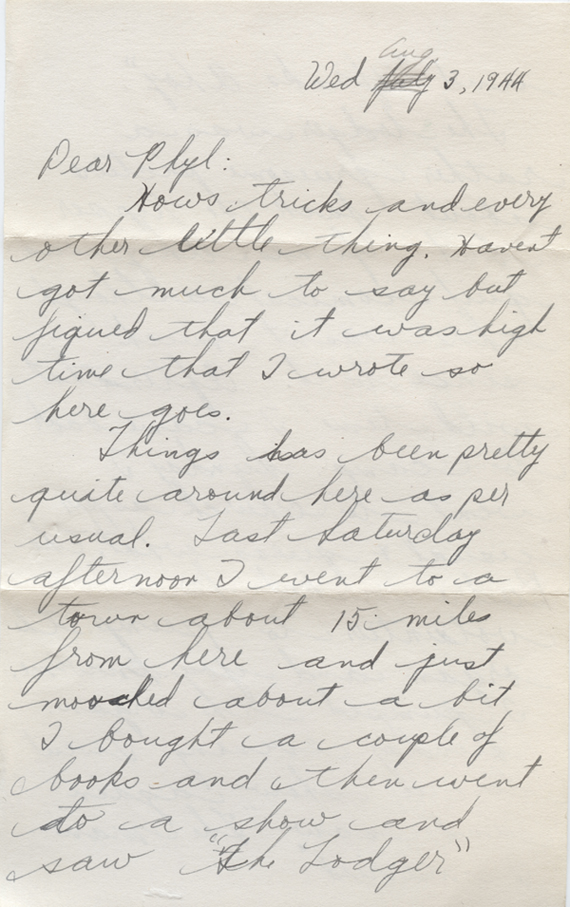 Aug
Wed July 3, 1944
Dear Phyl:
Hows tricks and every
other little thing. Havent
got much to say but
figued that it was high
time that I wrote so
here goes.
Things has been pretty
quite around here as per
usual. Last Saturday
afternoon I went to a
town about 15 miles
from here and just
mooched about a bit
I bought a couple of
books and then went
to a show and
saw "The Lodger"